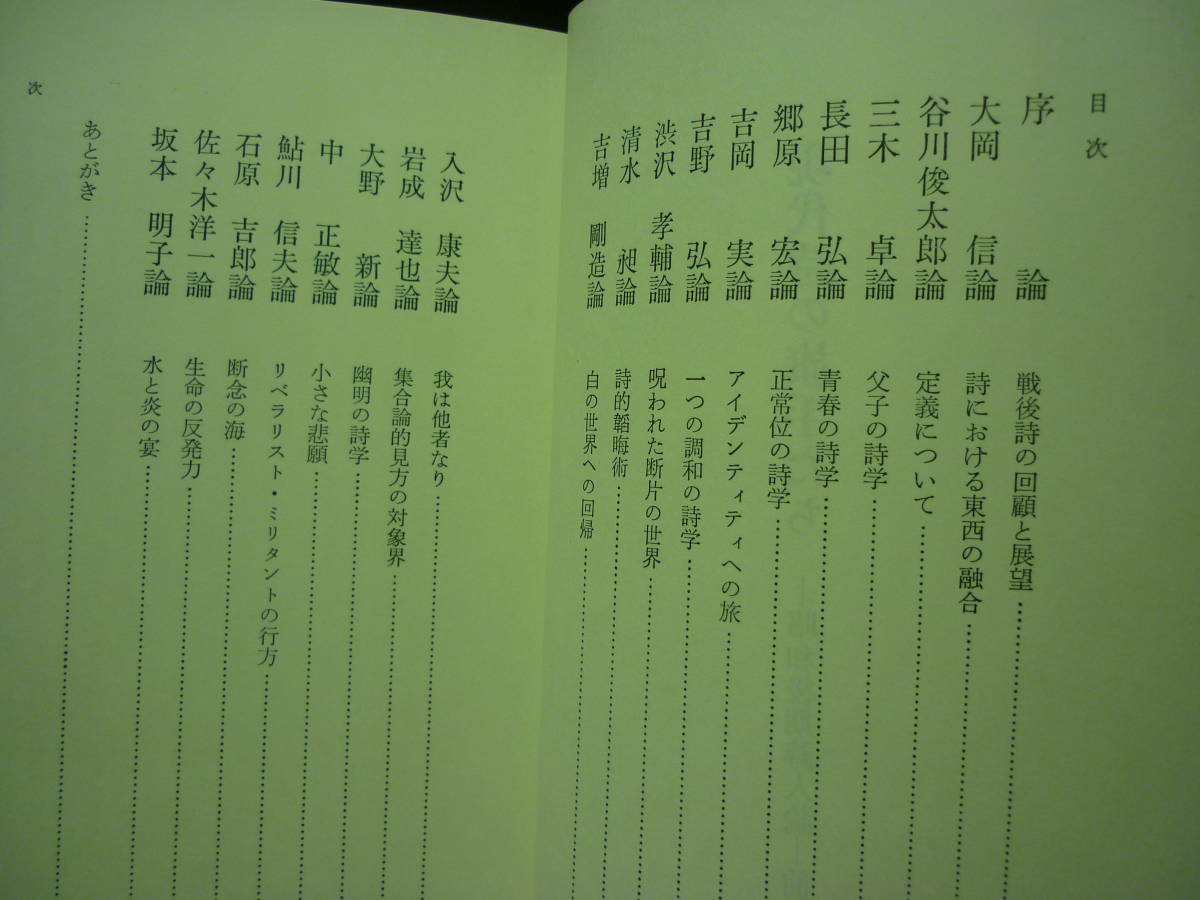 目次
序論 戦後詩の回顧と展望
大岡信論 詩における東西の融合
谷川俊太郎論 定義について
三木卓論 父子の詩学
長田弘論 青春の詩学
郷原宏論 正常位の詩学
吉岡実論 アイデンティティへの旅
吉野弘論 一つの調和の詩学
渋沢孝輔論 呪われた断片の世界
清水昶論 詩的韜晦術
吉増剛造論 白の世界への回帰
入沢康夫論 我は他者なり
岩成達也論 集合論的見方の対象界
大野新論 幽明の詩学
中正敏論 小さな悲願
鮎川信夫論 リベラリスト・ミリタントの行方
石原吉郎論 断念の海
佐々木洋一論 生命の反発力
坂本明子論 水と炎の宴
あとがき
次